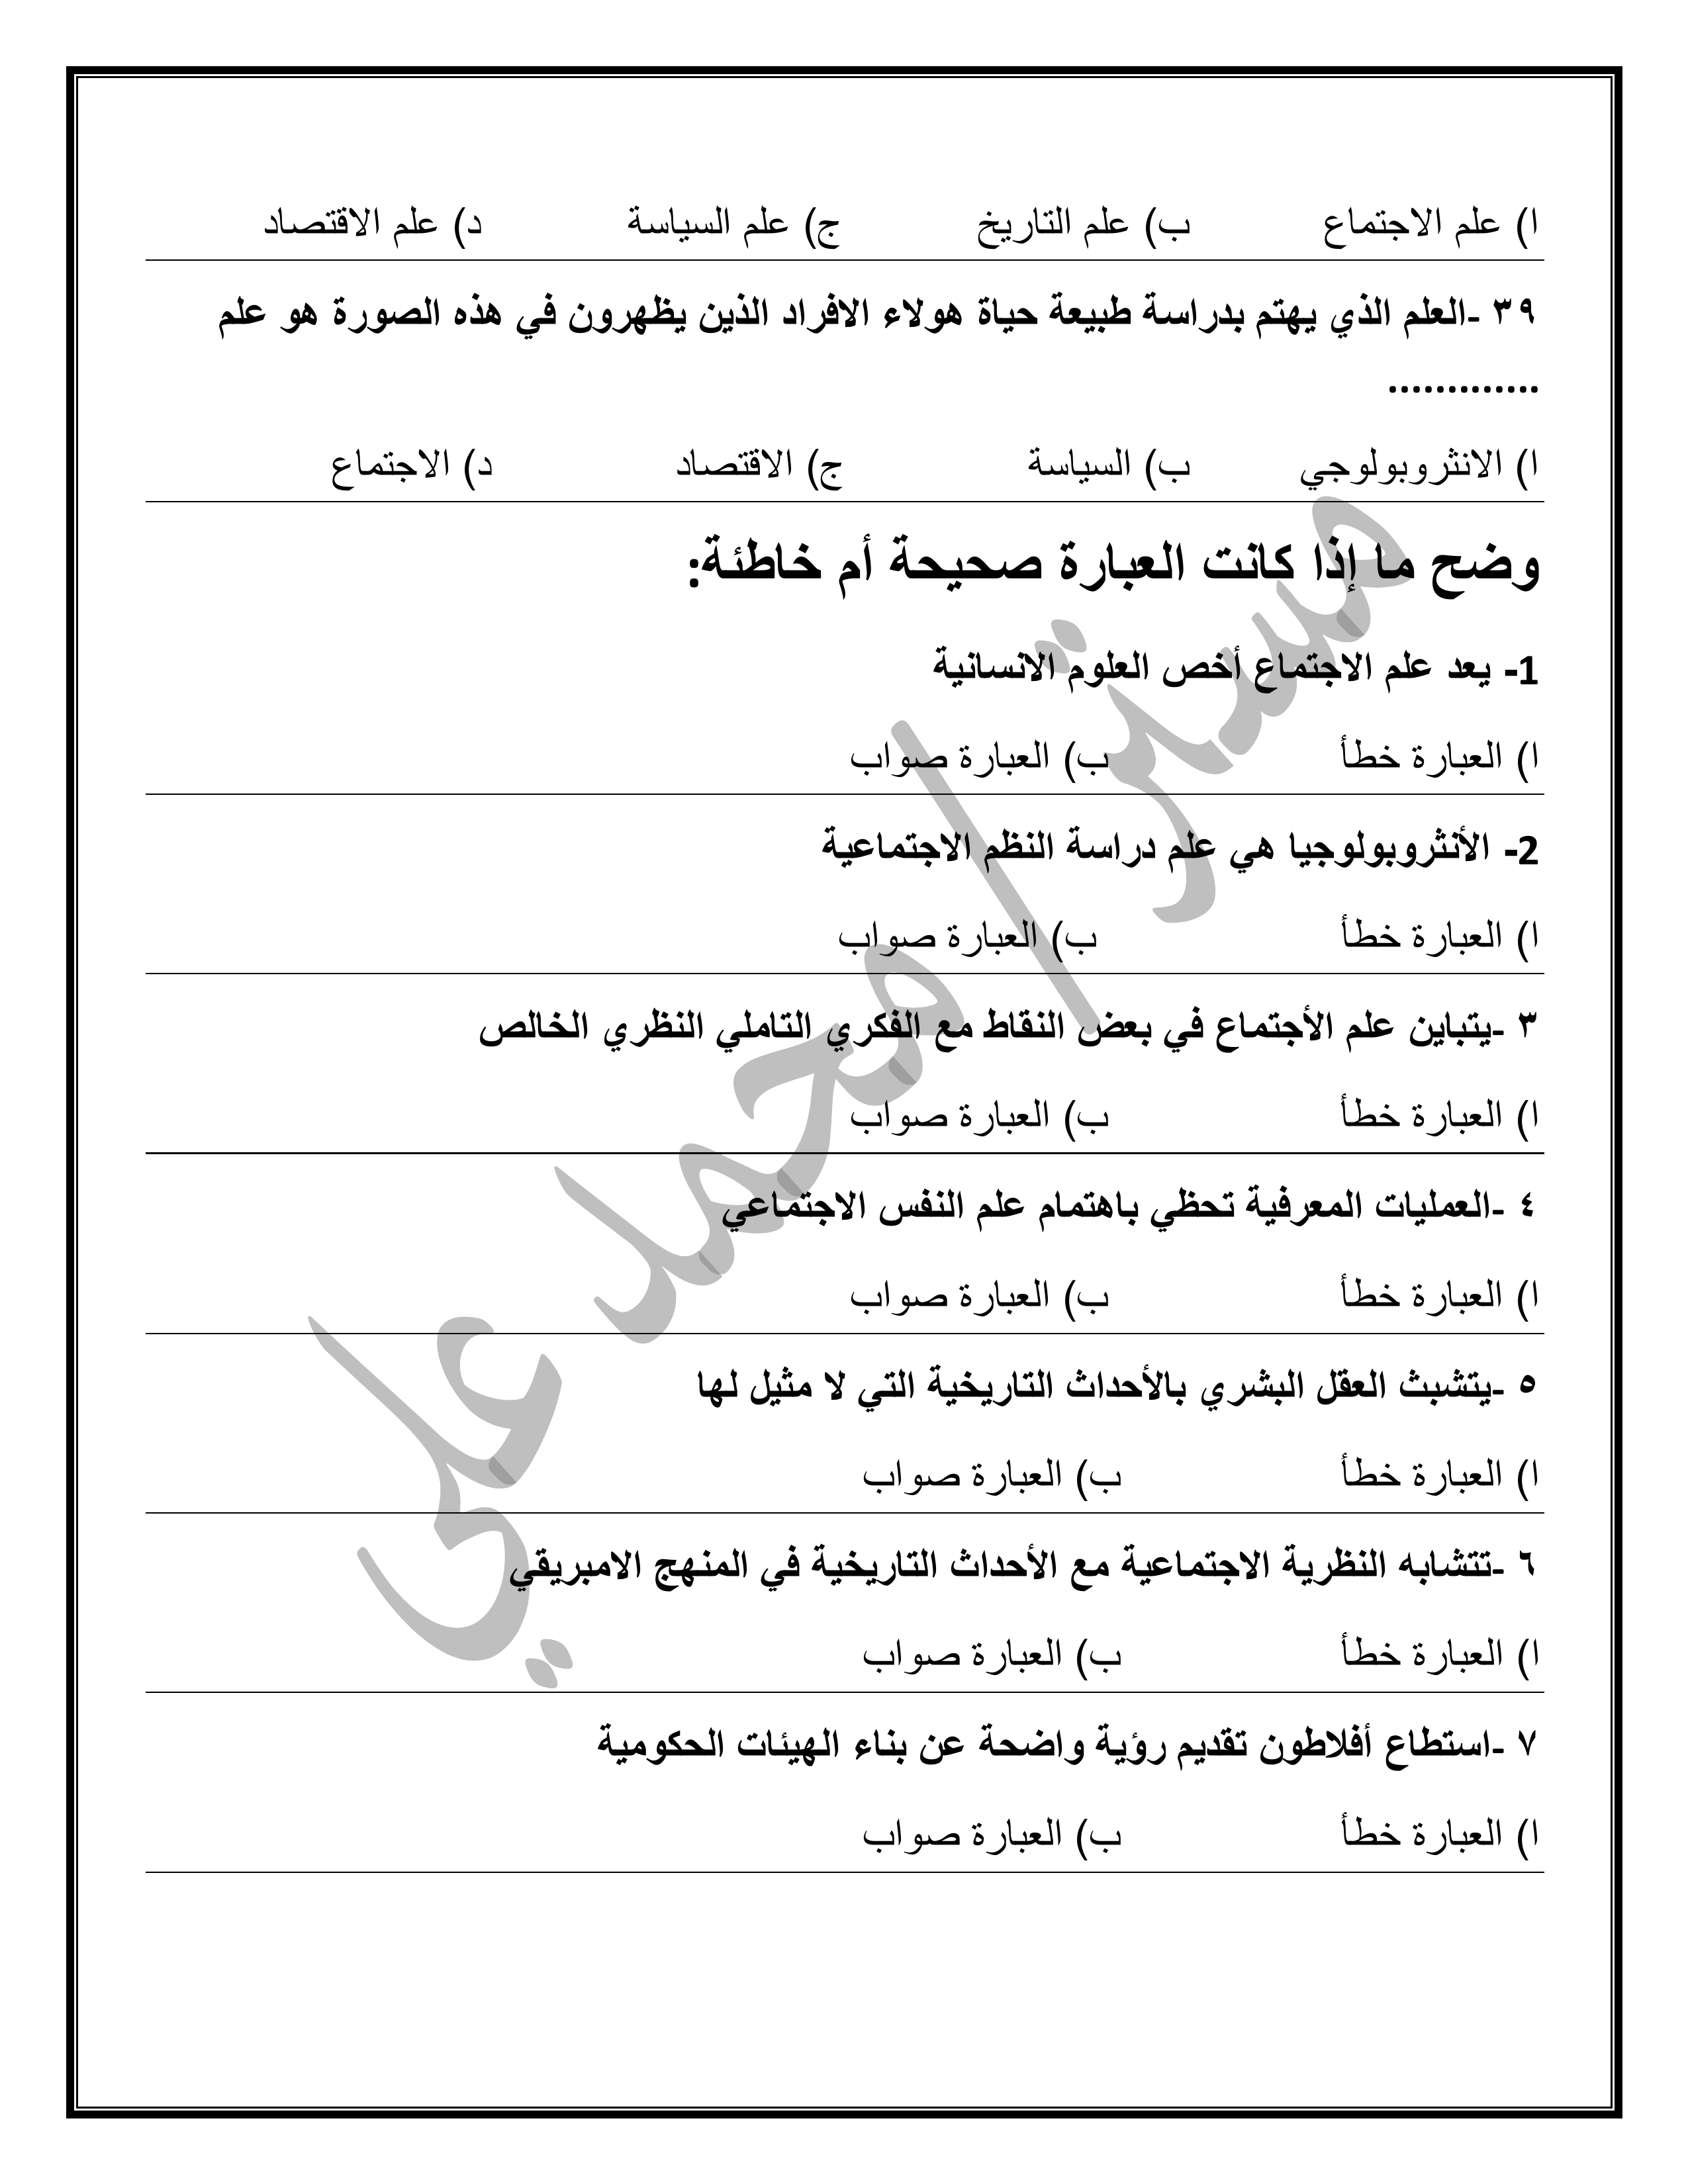 ا) علم الاجتماع ب) علم التاريخ ج) علم السياسة د) علم الاقتصاد
٣٩ -العلم الذي يهتم بدراسة طبيعة حياة هولاء الافراد الذين يظهرون في هذه الصورة هو علم
.............
ا) الانثروبولوجي ب) السياسة ج) الاقتصاد د) الاجتماع
وضح ما إذا كانت العبارة صحيحة أم خاطئة:
1- يعد علم الاجتماع أخص العلوم الانسانية
ا) العبارة خطأ ب) العبارة صواب
2- الأنثروبولوجيا هي علم دراسة النظم الاجتماعية
ا) العبارة خطأ ب) العبارة صواب
٣ -يتباين علم الأجتماع في بعض النقاط مع الفكري التاملي النظري الخالص
ا) العبارة خطأ ب) العبارة صواب
٤ -العمليات المعرفية تحظي باهتمام علم النفس الاجتماعي
ا) العبارة خطأ ب) العبارة صواب
٥ -يتشبث العقل البشري بالأحداث التاريخية التي لا مثيل لها
ا) العبارة خطأ ب) العبارة صواب
٦ -تتشابه النظرية الاجتماعية مع الأحداث التاريخية في المنهج الامبريقي
ا) العبارة خطأ ب) العبارة صواب
٧ -استطاع أفلاطون تقديم رؤية واضحة عن بناء الهيئات الحكومية
ا) العبارة خطأ ب) العبارة صواب
مستر/محمد علي